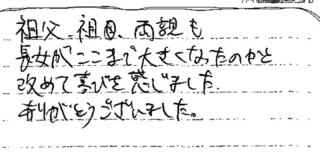 祖父、祖母、両親も
長女がここまで大きくなったのかと
改めて喜びを感じました。
ありがとうございました。